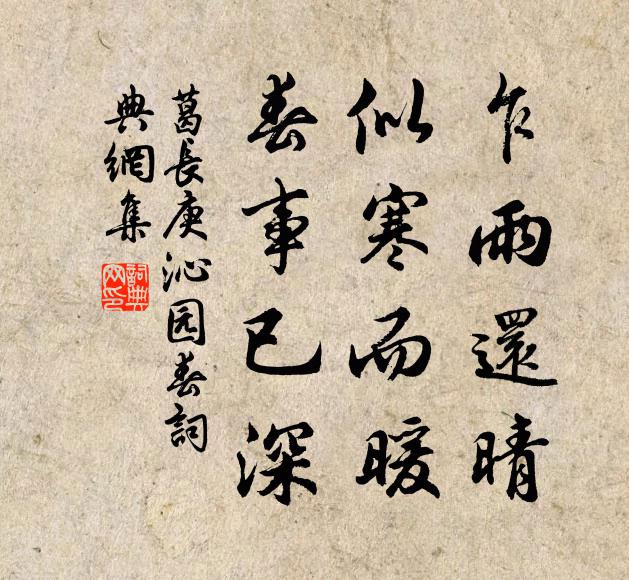 乍雨還晴
似寒而暖
春事已深
葛長庚沁园春詞
典網集
詞典网印